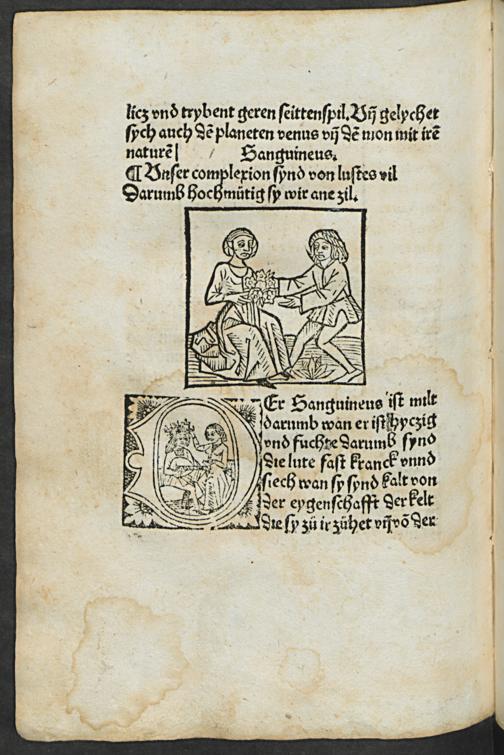 licz vnd trybent geren seittenspil. Vñ gelychet
sych auch dē planeten venus vñ dē mon mit irē
naturē| Sanguineus.
¶ Vnser complexion synd von lustes vil
Darumb hochmütig sy wir ane zil.
DEr Sanguineus ist milt
darumb wan er ist hyczig
vnd fuchte darumb synd
die lute fast kranck vnnd
siech wan sy synd kalt von
der eygenschafft der kelt
die sy zü ir zühet vñ vō der